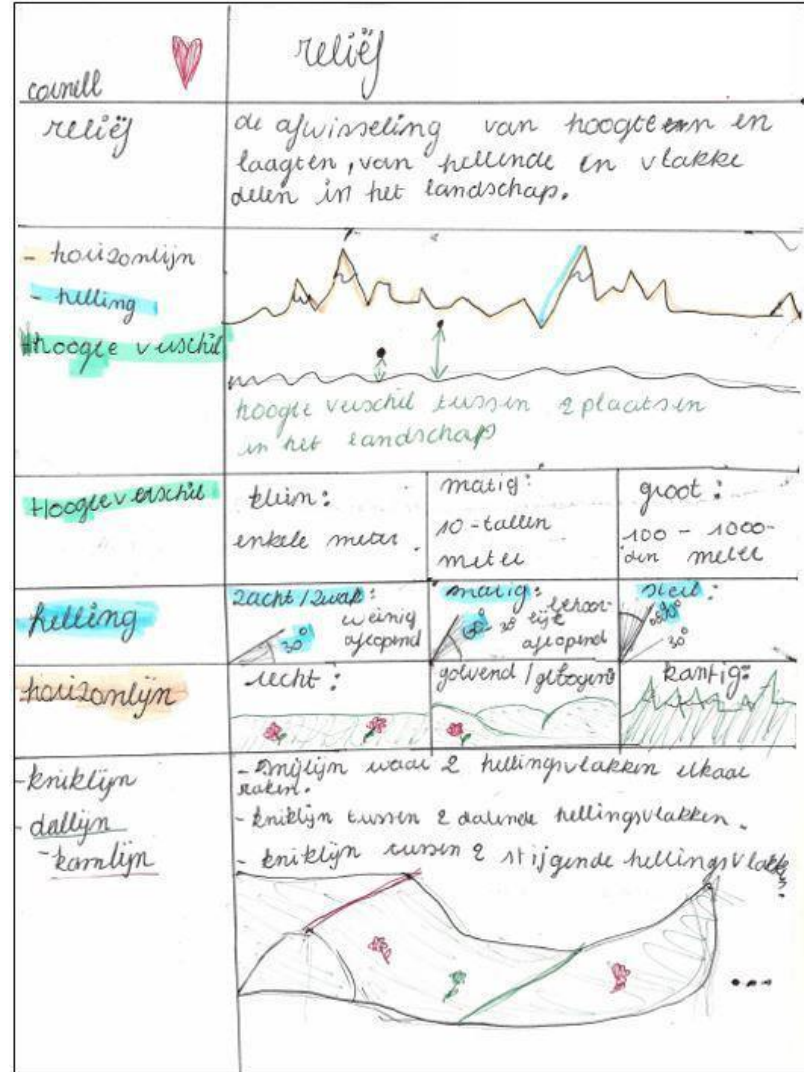 cornell
reliëf
reliëf
de afwisseling van hoogten en
laagten, van hellende en vlakke
delen in het landschap.
- horizonlijn
- helling
Hoogte verschil
hoogte verschil tussen 2 plaatsen
in het landschap
Hoogteverschil
klein:
enkele meter.
matig:
10-tallen
meter
groot:
100 - 1000-
den meter
helling
zacht / zwak:
weinig
aflopend
30°
matig:
60° 30°
behoor-
lijk
aflopend
steil:
90°
30°
horizonlijn
recht:
golvend / gebogen:
kantig:
- kniklijn
- dallijn
- kamlijn
- snijlijn waar 2 hellingsvlakken elkaar
raken.
- kniklijn tussen 2 dalende hellingsvlakken.
- kniklijn tussen 2 stijgende hellingsvlakken.